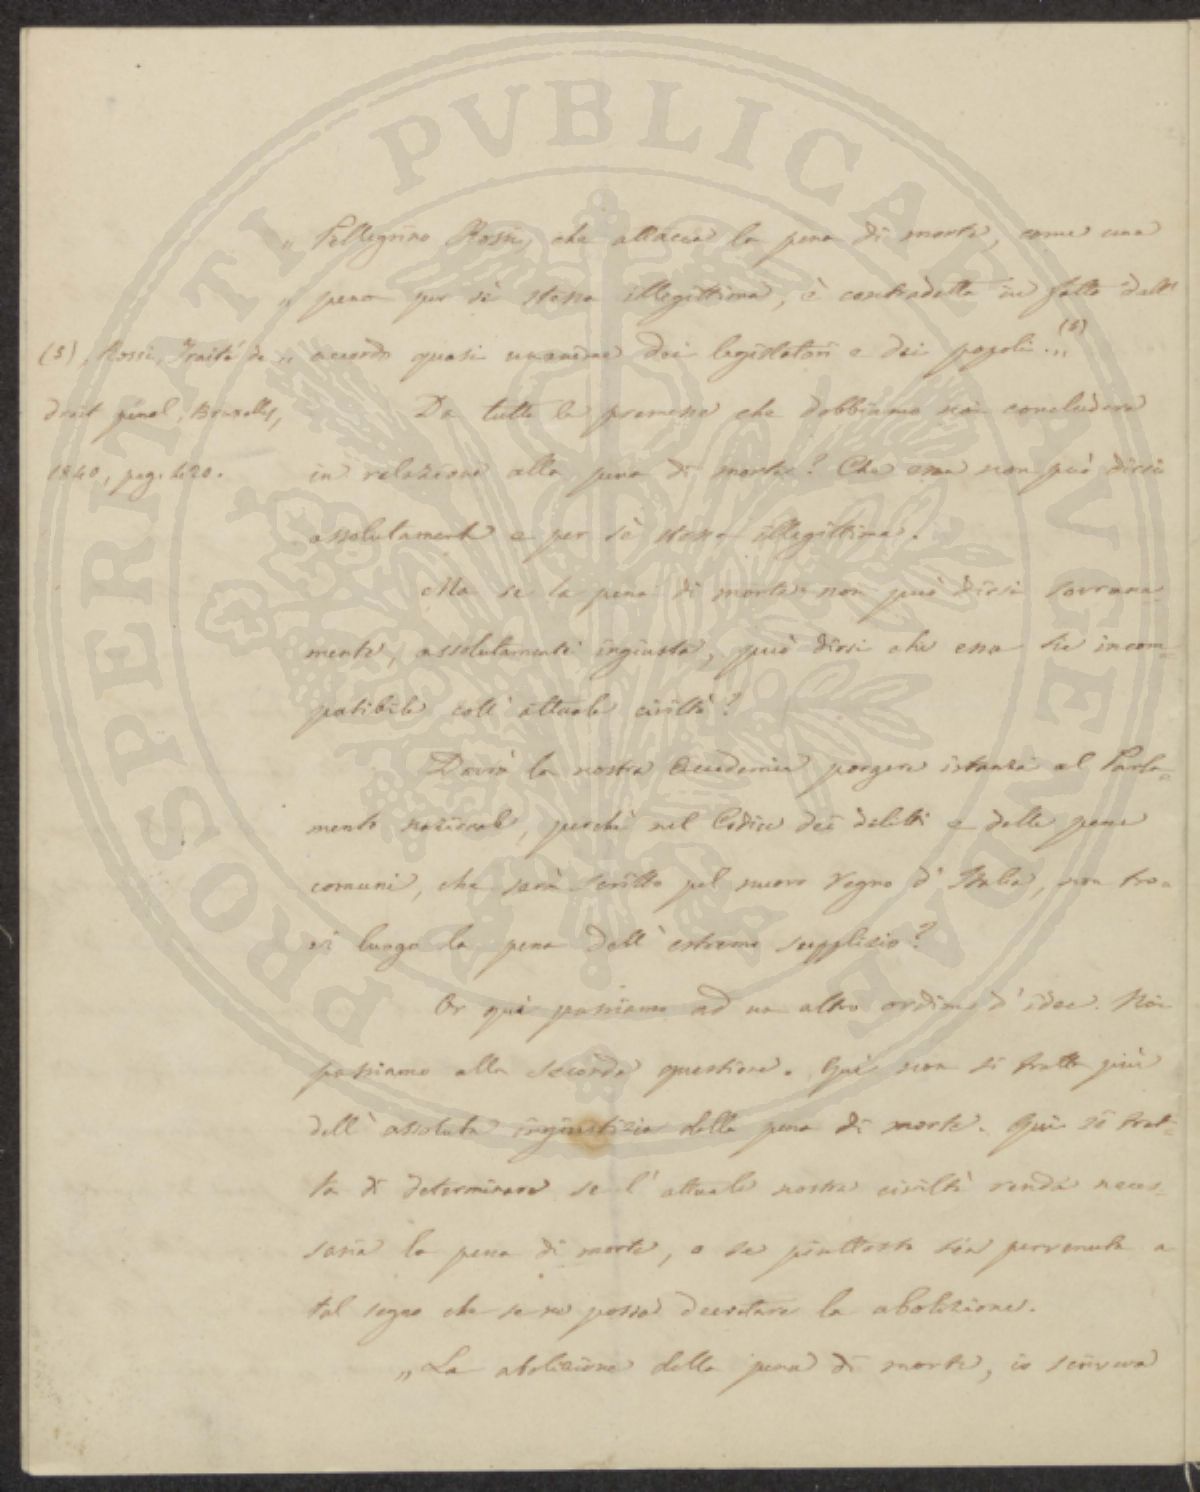 PROSPERITATI PVBLICAE AVGENDAE
„ Pellegrino Rossi, che attacca la pena di morte, come una
„ pena per sè stessa illegittima, è contradetto in fatto dall'
„ accordo quasi unanime dei legislatori e dei popoli.„ (8)
(8). Rossi, Traité de
droit pénal, Bruxelles,
1840, pag. 420.
Da tutte le premesse che dobbiamo noi concludere
in relazione alla pena di morte? Che essa non può dirsi
assolutamente e per sè stessa illegittima.
Ma se la pena di morte non può dirsi sovrana-
mente, assolutamente ingiusta, può dirsi che essa sia incom-
patibile coll' attuale civiltà?
Dovrà la nostra Accademia porgere istanza al Parla-
mento nazionale, perchè nel Codice dei delitti e delle pene
comuni, che sarà scritto pel nuovo regno d' Italia, non tro-
vi luogo la pena dell' estremo supplizio?
Or quì passiamo ad un altro ordine d' idee. Noi
passiamo alla seconda questione. Quì non si tratta più
dell' assoluta ingiustizia della pena di morte. Quì si trat-
ta di determinare se l' attuale nostra civiltà renda neces-
saria la pena di morte, o se piuttosto sia pervenuta a
tal segno che se ne possa decretare la abolizione.
„ La abolizione della pena di morte, io scriveva